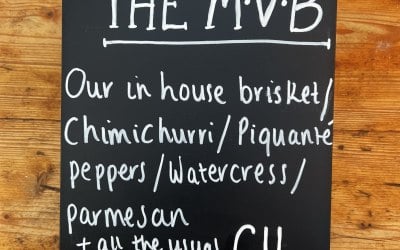 THE M.V.B
Our in house brisket/
Chimichurri/Piquanté
peppers/Watercress/
parmesan
+ all the usual